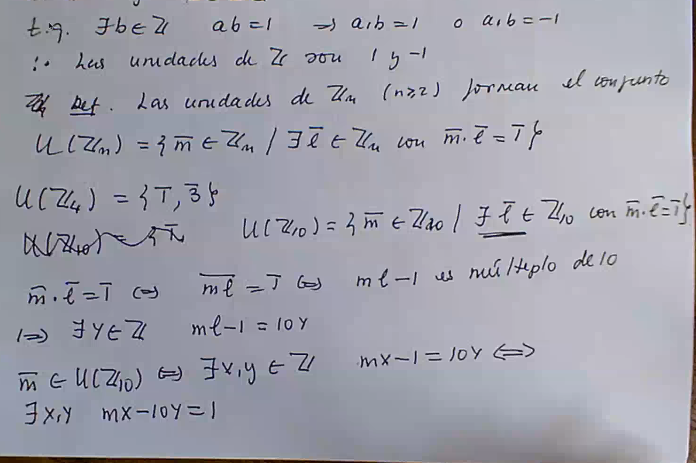 t.q. ∃b∈ℤ ab=1 ⇒ a,b=1 o a,b=-1
∴ Las unidades de ℤ son 1 y -1
Def. Las unidades de ℤn (n≥2) forman el conjunto
U(ℤn) = {m̅ ∈ ℤn / ∃ l̅ ∈ ℤn con m̅·l̅ = 1̅}
U(ℤ4) = {1̅, 3̅}
U(ℤ10) = {m̅ ∈ ℤ10 / ∃ l̅ ∈ ℤ10 con m̅·l̅ = 1̅}
m̅·l̅ = 1̅ ⇔ m̅l̅ = 1̅ ⇔ ml-1 es múltiplo de 10
⇔ ∃ y∈ℤ ml-1 = 10y
m̅ ∈ U(ℤ10) ⇔ ∃x,y ∈ ℤ mx-1 = 10y ⇔
∃x,y mx-10y = 1